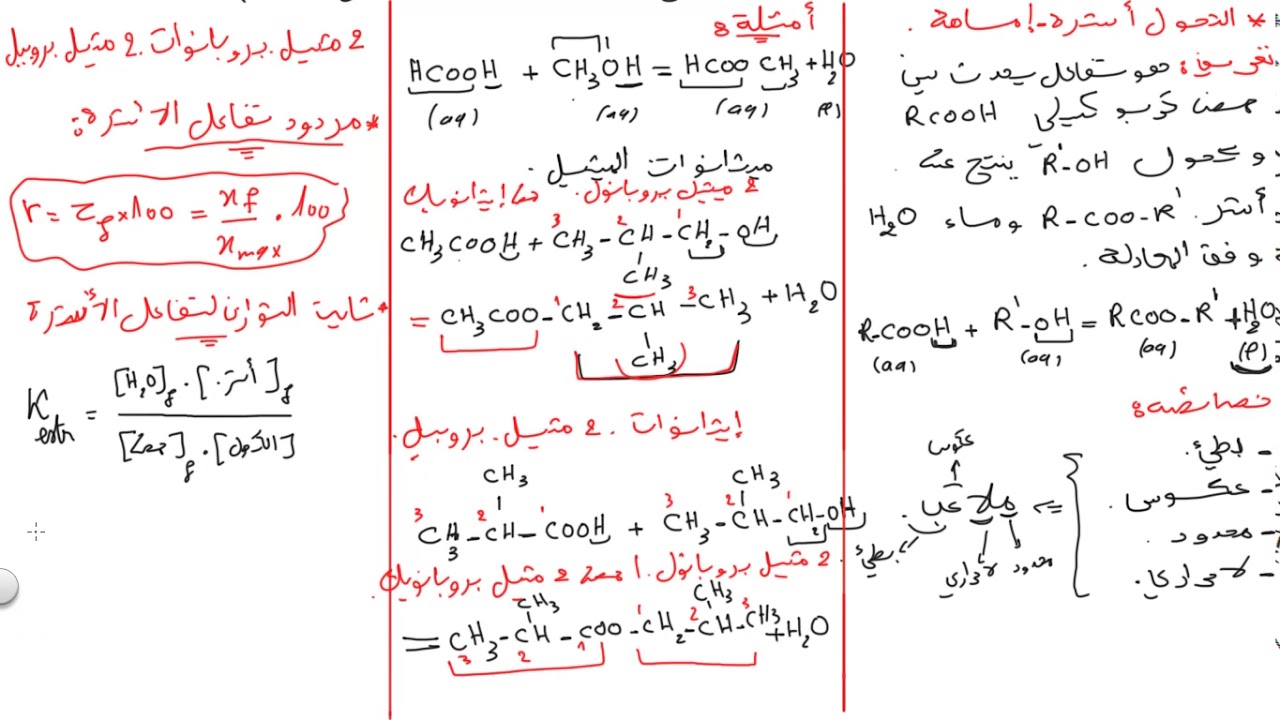 * التحول أسترة - إماهة .
تعريف : هو تفاعل يحدث بين
حمض كربوكسيلي RCOOH
و كحول R'-OH ينتج عنه
أستر R-COO-R' وماء H₂O
وفق المعادلة .
R-COOH + R'-OH = RCOO-R' + H₂O
(aq) (aq) (aq) (l)
خصائصه :
- بطيئ .
- عكوس .
- محدود .
- لا حراري .
عكوس
ملاعب .
محدود لا حراري بطيئ
أمثلة :
HCOOH + CH₃OH = HCOO CH₃ + H₂O
(aq) (aq) (aq) (l)
ميثانوات الميثيل .
2 ميثيل بروبانول .
CH₃COOH + CH₃ - CH - CH₂ - OH
3 2 1
CH₃
= CH₃COO - CH₂ - CH - CH₃ + H₂O
1 2 3
CH₃
إيثانوات . 2 مثيل . بروبيل .
CH₃ CH₃
3 2 1 3 2 1
CH₃ - CH - COOH + CH₃ - CH - CH₂ - OH
2 مثيل بروبانول . حمض 2 مثيل بروبانويك .
CH₃ CH₃
= CH₃ - CH - COO - CH₂ - CH - CH₃ + H₂O
3 2 1 1 2 3
2 مثيل . بروبانوات . 2 مثيل بروبيل
* مردود تفاعل الأسترة :
r = τf × 100 = xf / xmax . 100
* ثابت التوازن لتفاعل الأسترة
Kestr = [H₂O]f . [أستر]f / [حمض]f . [الكحول]